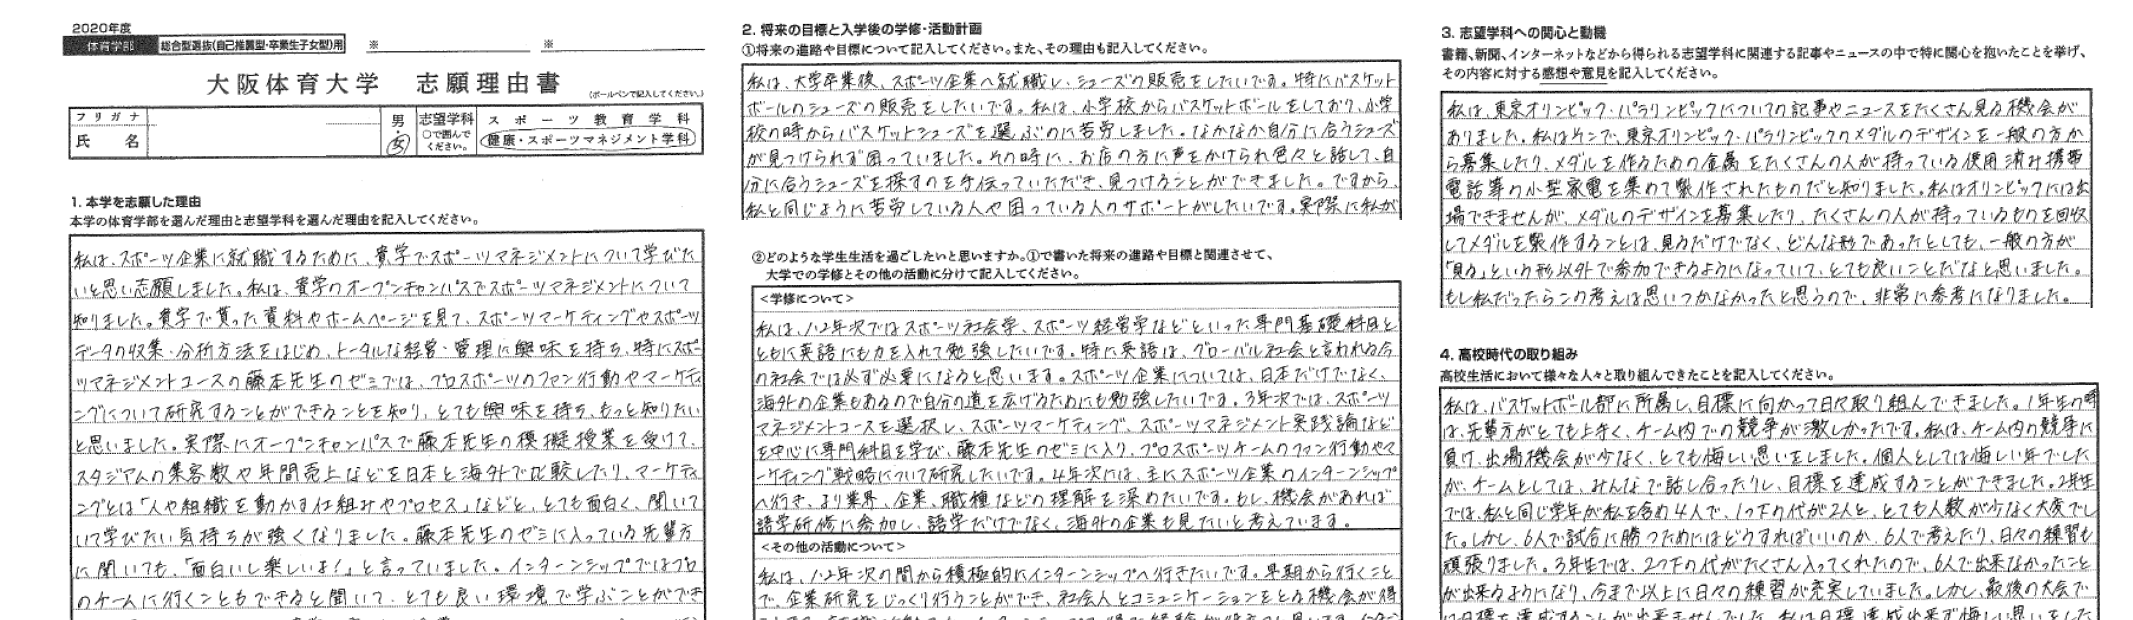 2020年度
体育学部 総合型選抜(自己推薦型・卒業生子女型)用 ※ ※
大阪体育大学 志願理由書
(ボールペンで記入してください。)
フリガナ
氏名
男・女
志望学科
○で囲んでください。
スポーツ教育学科
健康・スポーツマネジメント学科
1. 本学を志願した理由
本学の体育学部を選んだ理由と志望学科を選んだ理由を記入してください。
私は、スポーツ企業に就職するために、貴学でスポーツマネジメントについて学びた
いと思い志願しました。私は、貴学のオープンキャンパスでスポーツマネジメントについて
知りました。貴学で貰った資料やホームページを見て、スポーツマーケティングやスポーツ
データの収集・分析方法をはじめ、トータルな経営・管理に興味を持ち、特にスポー
ツマネジメントコースの藤本先生のゼミでは、プロスポーツのファン行動やマーケティ
ングについて研究することができることを知り、とても興味を持ち、もっと知りたい
と思いました。実際にオープンキャンパスで藤本先生の模擬授業を受けて、
スタジアムの集客数や年間売上などを日本と海外で比較したり、マーケティ
ングとは「人や組織を動かす仕組みやプロセス」などと、とても面白く、聞いて
いて学びたい気持ちが強くなりました。藤本先生のゼミに入っている先輩方
に聞いても、「面白いし楽しいよ!」と言っていました。インターンシップではプロ
のチームに行くこともできると聞いて、とても良い環境で学ぶことができ
2. 将来の目標と入学後の学修・活動計画
①将来の進路や目標について記入してください。また、その理由も記入してください。
私は、大学卒業後、スポーツ企業へ就職し、シューズの販売をしたいです。特にバスケット
ボールのシューズの販売をしたいです。私は、小学校からバスケットボールをしており、小学
校の時からバスケットシューズを選ぶのに苦労しました。なかなか自分に合うシューズ
が見つけられず困っていました。その時に、お店の方に声をかけられ色々と話して、自
分に合うシューズを探すのを手伝っていただき、見つけることができました。ですから、
私と同じように苦労している人や困っている人のサポートがしたいです。実際に私が
②どのような学生生活を過ごしたいと思いますか。①で書いた将来の進路や目標と関連させて、
大学での学修とその他の活動に分けて記入してください。
<学修について>
私は、1・2年次ではスポーツ社会学、スポーツ経営学などといった専門基礎科目と
ともに英語にも力を入れて勉強したいです。特に英語は、グローバル社会と言われる今
の社会では必ず必要になると思います。スポーツ企業については、日本だけでなく、
海外の企業もあるので自分の道を広げるためにも勉強したいです。3年次では、スポーツ
マネジメントコースを選択し、スポーツマーケティング、スポーツマネジメント実践論など
を中心に専門科目を学び、藤本先生のゼミに入り、プロスポーツチームのファン行動やマ
ーケティング戦略について研究したいです。4年次には、主にスポーツ企業のインターンシップ
へ行き、より業界、企業、職種などの理解を深めたいです。もし、機会があれば
語学研修に参加し、語学だけでなく、海外の企業も見たいと考えています。
<その他の活動について>
私は、1・2年次の間から積極的にインターンシップへ行きたいです。早期から行くこと
で、企業研究をじっくり行うことができ、社会人とコミュニケーションをとる機会が得
3. 志望学科への関心と動機
書籍、新聞、インターネットなどから得られる志望学科に関連する記事やニュースの中で特に関心を抱いたことを挙げ、
その内容に対する感想や意見を記入してください。
私は、東京オリンピック・パラリンピックについての記事やニュースをたくさん見る機会が
ありました。私はそこで、東京オリンピック・パラリンピックのメダルのデザインを一般の方か
ら募集したり、メダルを作るための金属をたくさんの人が持っている使用済み携帯
電話等の小型家電を集めて製作されたものだと知りました。私はオリンピックには出
場できませんが、メダルのデザインを募集したり、たくさんの人が持っているものを回収
してメダルを製作することは、見るだけでなく、どんな形であったとしても、一般の方が
「見る」という形以外で参加できるようになっていて、とても良いことだなと思いました。
もし私だったらこの考えは思いつかなかったと思うので、非常に参考になりました。
4. 高校時代の取り組み
高校生活において様々な人々と取り組んできたことを記入してください。
私は、バスケットボール部に所属し、目標に向かって日々取り組んできました。1年生の時
は、先輩方がとても上手く、チーム内での競争が激しかったです。私は、チーム内の競争に
負け、出場機会が少なく、とても悔しい思いをしました。個人としては悔しい年でした
が、チームとしては、みんなで話し合ったりし、目標を達成することができました。2年生
では、私と同じ学年が私を含め4人で、1つ下の代が2人と、とても人数が少なく大変でし
た。しかし、6人で試合に勝つためにはどうすればいいのか、6人で考えたり、日々の練習も
頑張りました。3年生では、2つ下の代がたくさん入ってくれたので、6人で出来なかったこと
が出来るようになり、今まで以上に日々の練習が充実していました。しかし、最後の大会で
は目標を達成することが出来ませんでした。私は目標達成出来ず悔しい思いをした